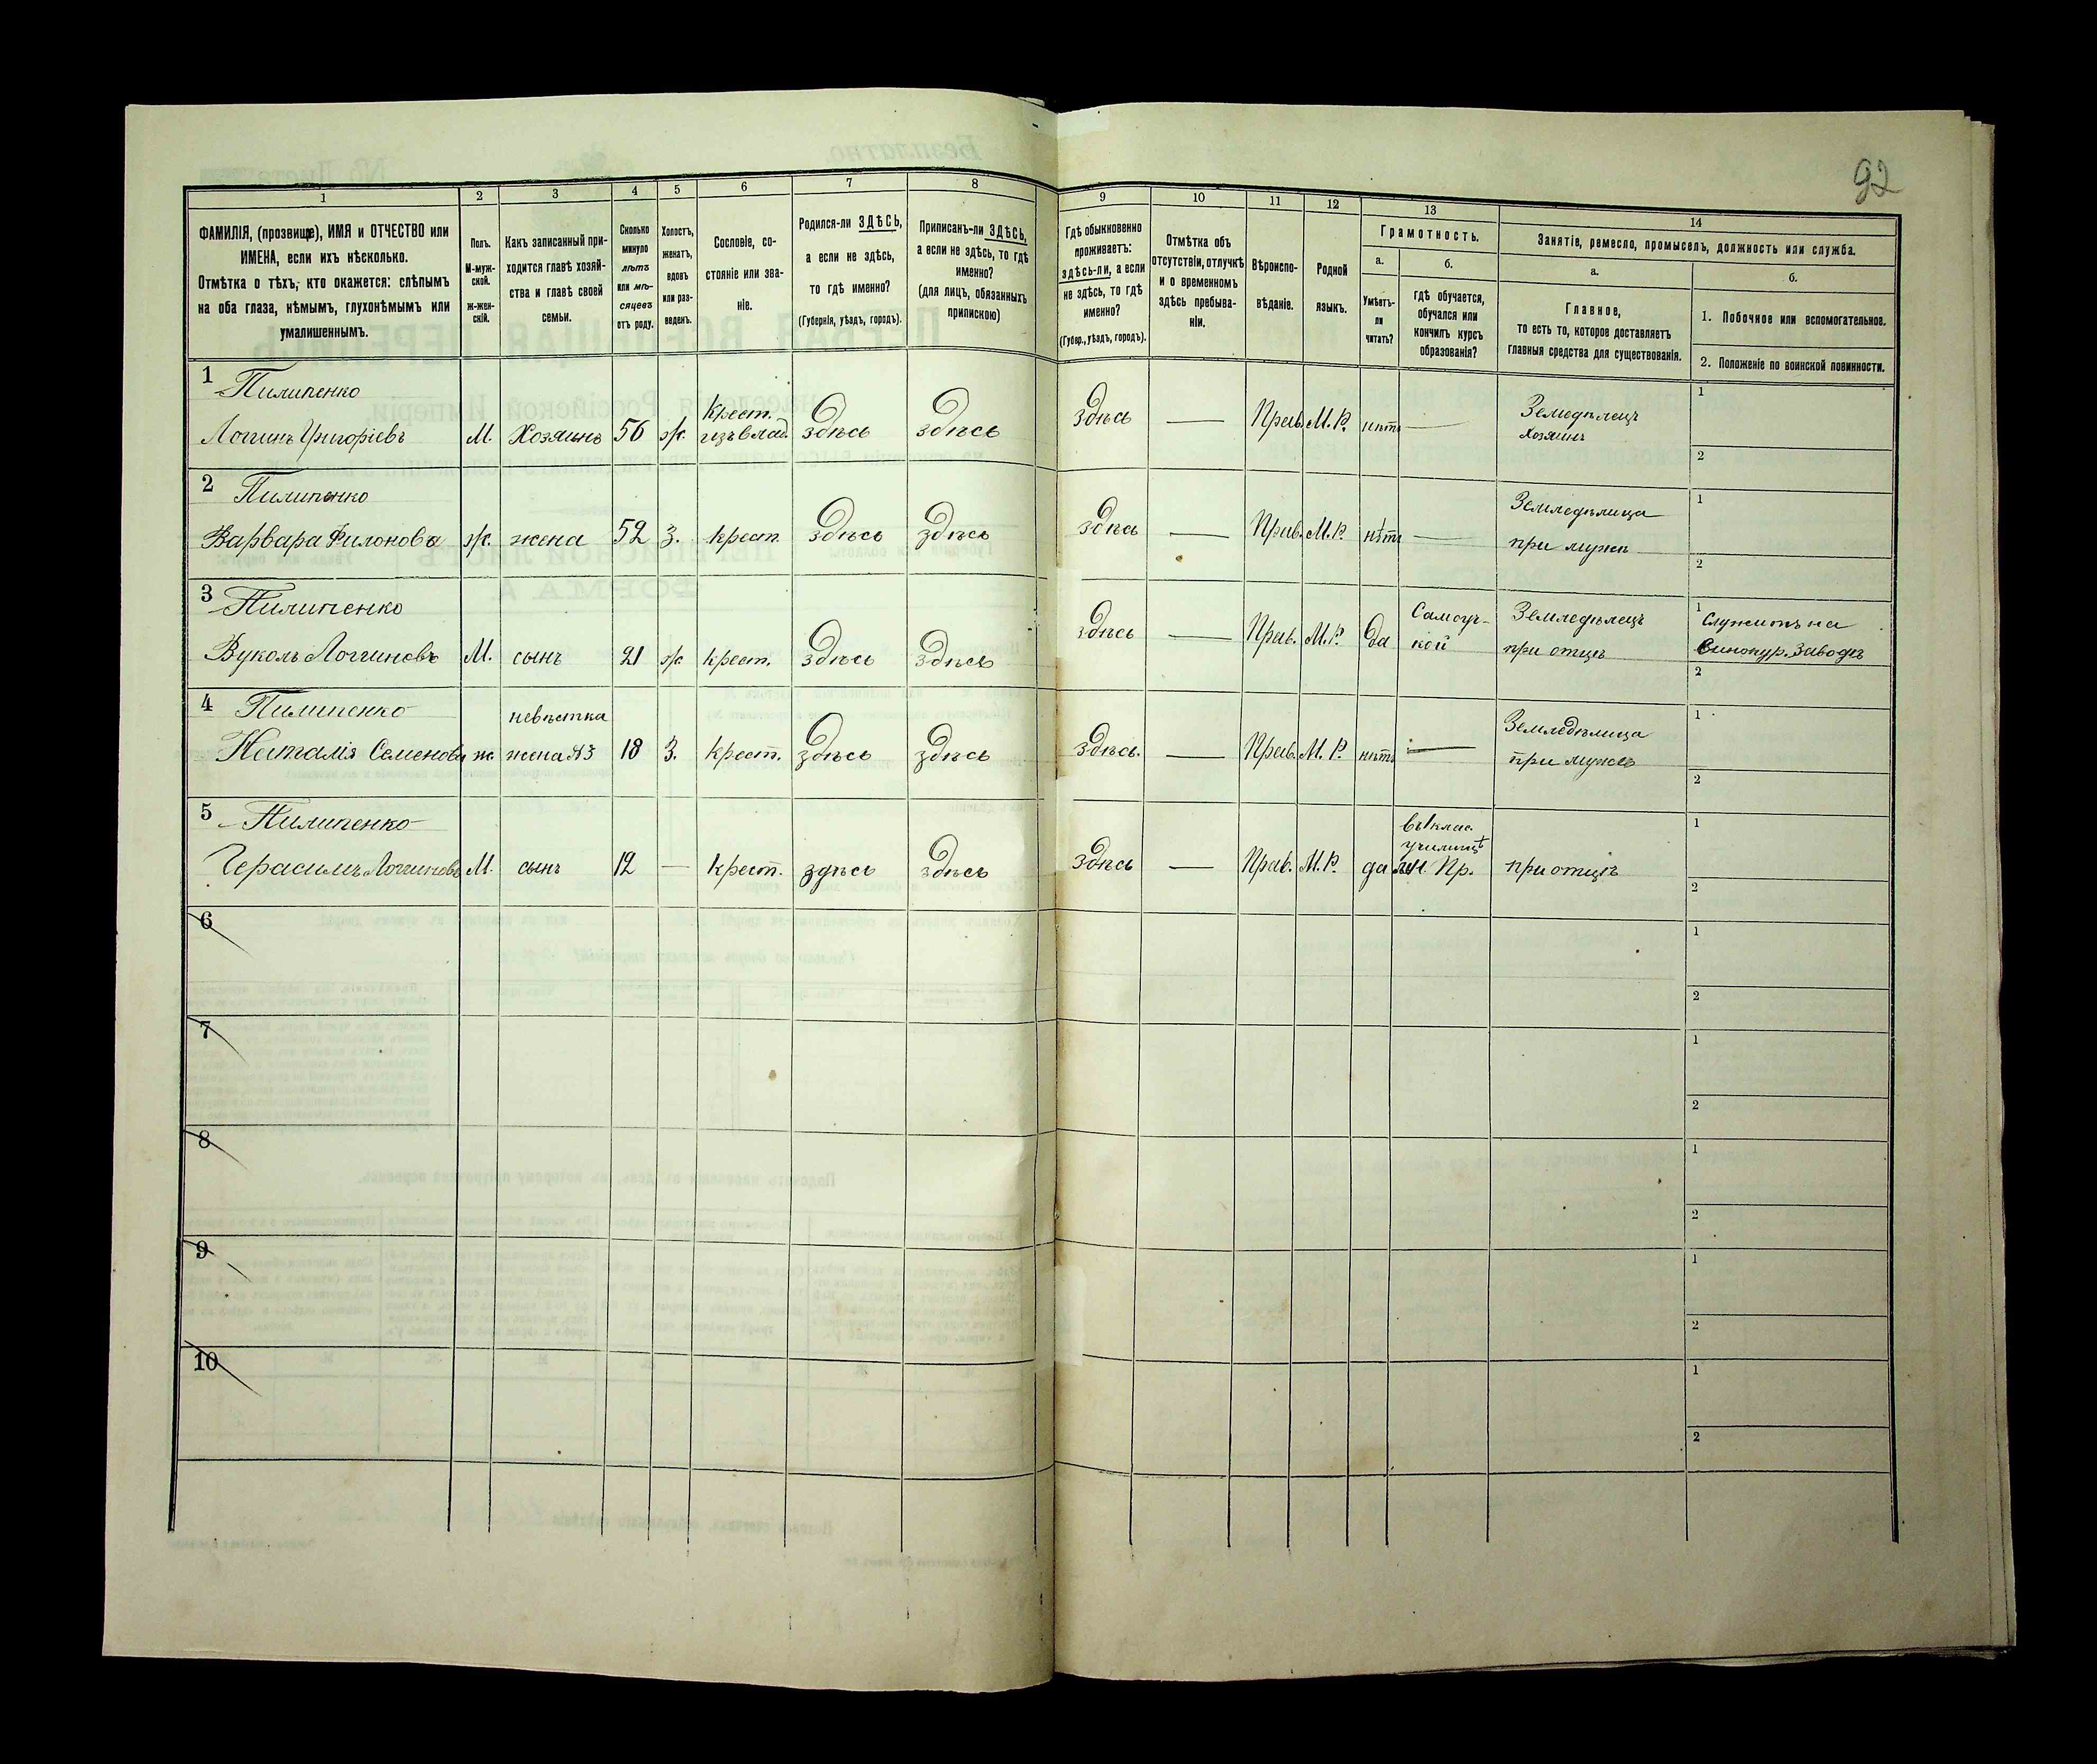 92
1
2
3
4
5
6
7
8
9
10
11
12
13
14
ФАМИЛІЯ, (прозвище), ИМЯ и ОТЧЕСТВО или
ИМЕНА, если ихъ нѣсколько.
Отмѣтка о тѣхъ, кто окажется: слѣпымъ
на оба глаза, нѣмымъ, глухонѣмымъ или
умалишеннымъ.
Полъ.
М-муж-
ской.
ж-жен-
скій.
Какъ записанный при-
ходится главѣ хозяй-
ства и главѣ своей
семьи.
Сколько
минуло
лѣтъ
или мѣ-
сяцевъ
отъ роду.
Холостъ,
женатъ,
вдовъ
или раз-
веденъ.
Сословіе, со-
стояніе или зва-
ніе.
Родился-ли ЗДѢСЬ,
а если не здѣсь,
то гдѣ именно?
(Губернія, уѣздъ, городъ).
Приписанъ-ли ЗДѢСЬ,
а если не здѣсь, то гдѣ
именно?
(для лицъ, обязанныхъ
припискою)
Гдѣ обыкновенно
проживаетъ:
здѣсь-ли, а если
не здѣсь, то гдѣ
именно?
(Губер., уѣздъ, городъ).
Отмѣтка объ
отсутствіи, отлучкѣ
и о временномъ
здѣсь пребыва-
ніи.
Вѣроиспо-
вѣданіе.
Родной
языкъ.
Грамотность.
а.
Умѣетъ-
ли
читать?
б.
гдѣ обучается,
обучался или
кончилъ курсъ
образованія?
Занятіе, ремесло, промыселъ, должность или служба.
а.
Главное,
то есть то, которое доставляетъ
главныя средства для существованія.
б.
1. Побочное или вспомогательное.
2. Положеніе по воинской повинности.
1 Пилипенко
Логгинъ Григоріевъ М. Хозяинъ 56 ж. крест. изъ влад. здѣсь здѣсь здѣсь — Прав. М.Р. нѣтъ — Земледѣлецъ
хозяинъ
1
2
2 Пилипенко
Варвара Филонова ж. жена 52 З. крест. здѣсь здѣсь здѣсь — Прав. М.Р. нѣтъ — Земледѣлица
при мужѣ
1
2
3 Пилипенко
Вуколъ Логгиновъ М. сынъ 21 ж. крест. здѣсь здѣсь здѣсь — Прав. М.Р. да Самоуч-
кой
Земледѣлецъ
при отцѣ
1 Служитъ на
винокур. заводѣ
2
4 Пилипенко невѣстка
Наталія Семенова ж. жена №3 18 З. крест. здѣсь здѣсь здѣсь. — Прав. М.Р. нѣтъ — Земледѣлица
при мужѣ
1
2
5 Пилипенко
Герасимъ Логгиновъ М. сынъ 12 — крест. здѣсь здѣсь здѣсь — Прав. М.Р. да
въ 1 клас.
училищѣ
М Н Пр.
при отцѣ
1
2
6
1
2
7
1
2
8
1
2
9
1
2
10
1
2